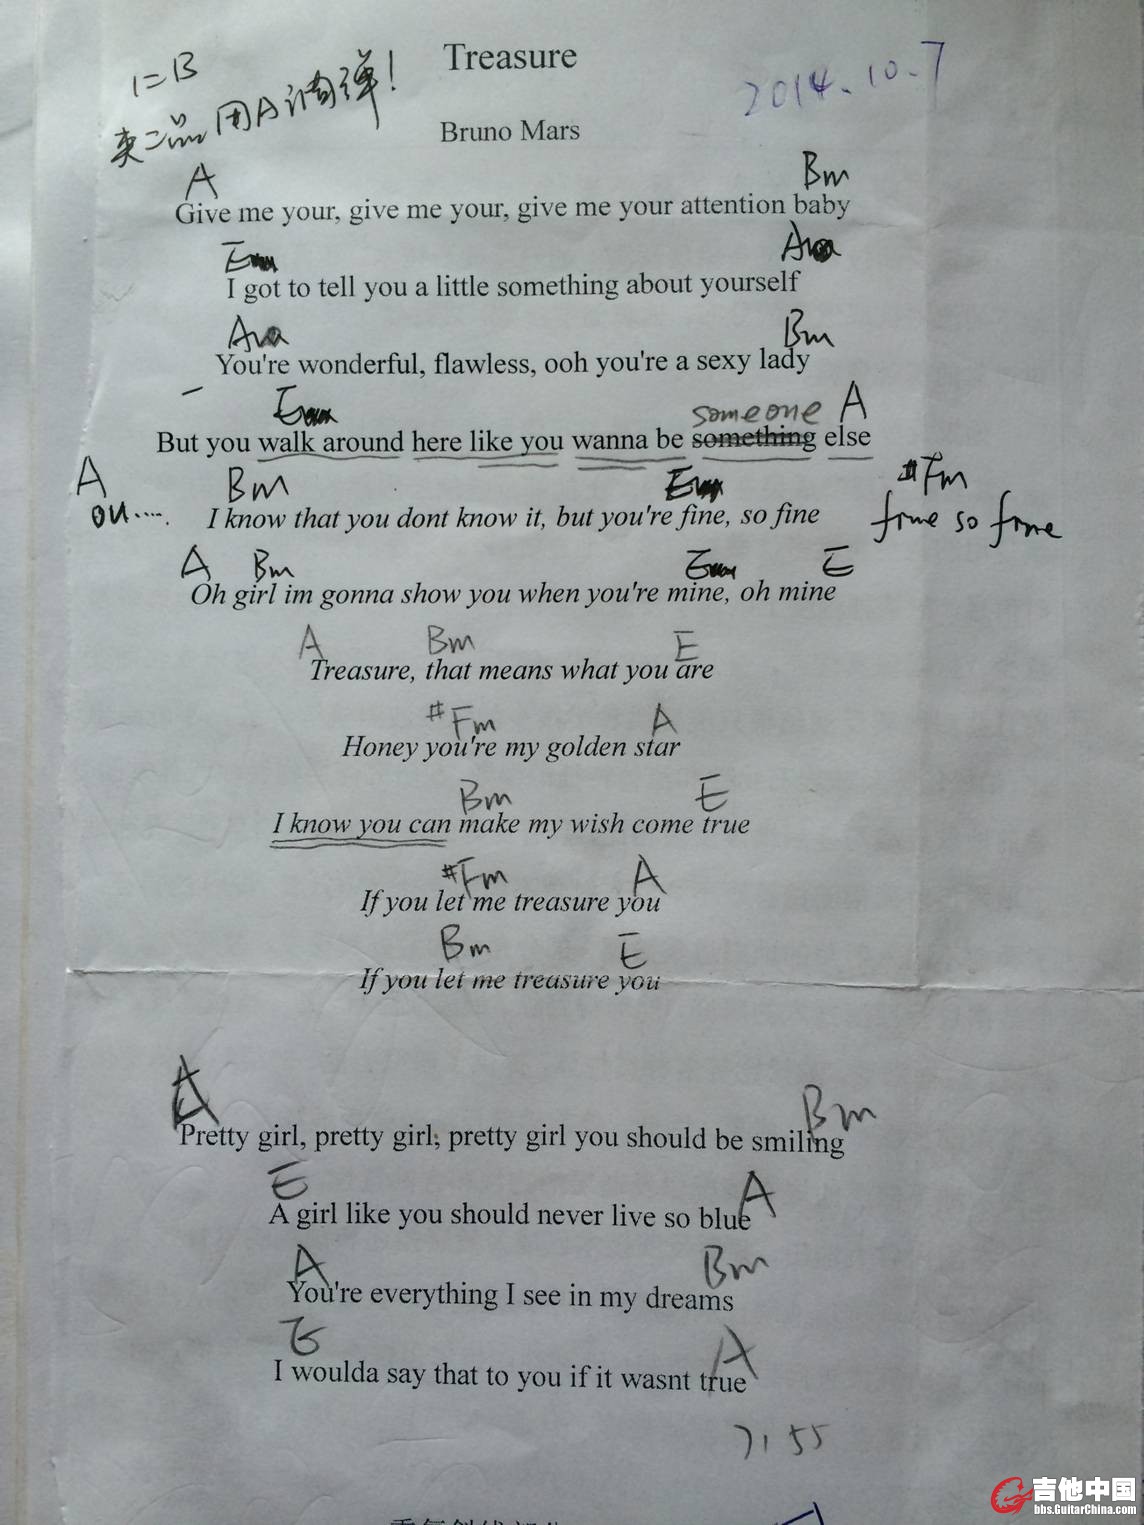 Treasure
1=B
夹二品 用A调弹!
2014.10.7
Bruno Mars
A Bm
Give me your, give me your, give me your attention baby
E A
I got to tell you a little something about yourself
A Bm
You're wonderful, flawless, ooh you're a sexy lady
E someone A
But you walk around here like you wanna be something else
A Bm E #Fm
ou.... I know that you dont know it, but you're fine, so fine fine so fine
A Bm E E
Oh girl im gonna show you when you're mine, oh mine
A Bm E
Treasure, that means what you are
#Fm A
Honey you're my golden star
Bm E
I know you can make my wish come true
#Fm A
If you let me treasure you
Bm E
If you let me treasure you
A Bm
Pretty girl, pretty girl, pretty girl you should be smiling
E A
A girl like you should never live so blue
A Bm
You're everything I see in my dreams
E A
I woulda say that to you if it wasnt true
吉他中国
bbs.GuitarChina.com